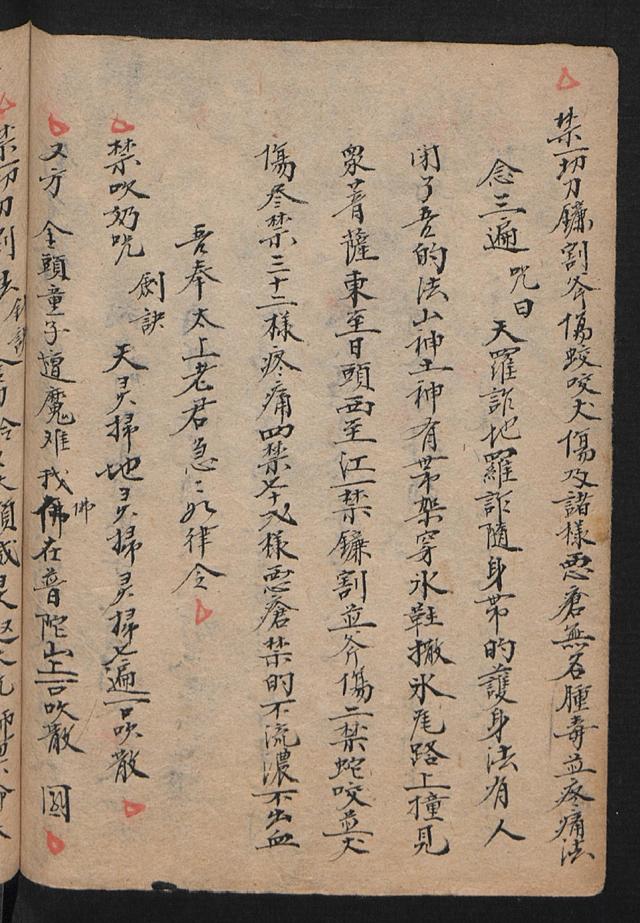 禁一切刀鐮割斧傷蛟咬犬傷及諸樣恶瘡無名腫毒並疼痛法
念三遍 咒曰 天羅詐地羅詐隨身带的護身法有人
闭了吾的法山神土神有带架穿氷鞋撒氷尾路上撞見
衆菩薩東至日頭西至江一禁鐮割並斧傷二禁蛇咬並犬
傷尽禁三十二樣疼痛四禁七十八樣恶瘡禁的不流濃不出血
吾奉太上老君急〻如律令
劍訣
禁吹奶咒 天灵掃地灵掃灵掃七遍一口吹散
又方 金頭童子遭魔难我佛在普陀山上一口吹散 國
佛